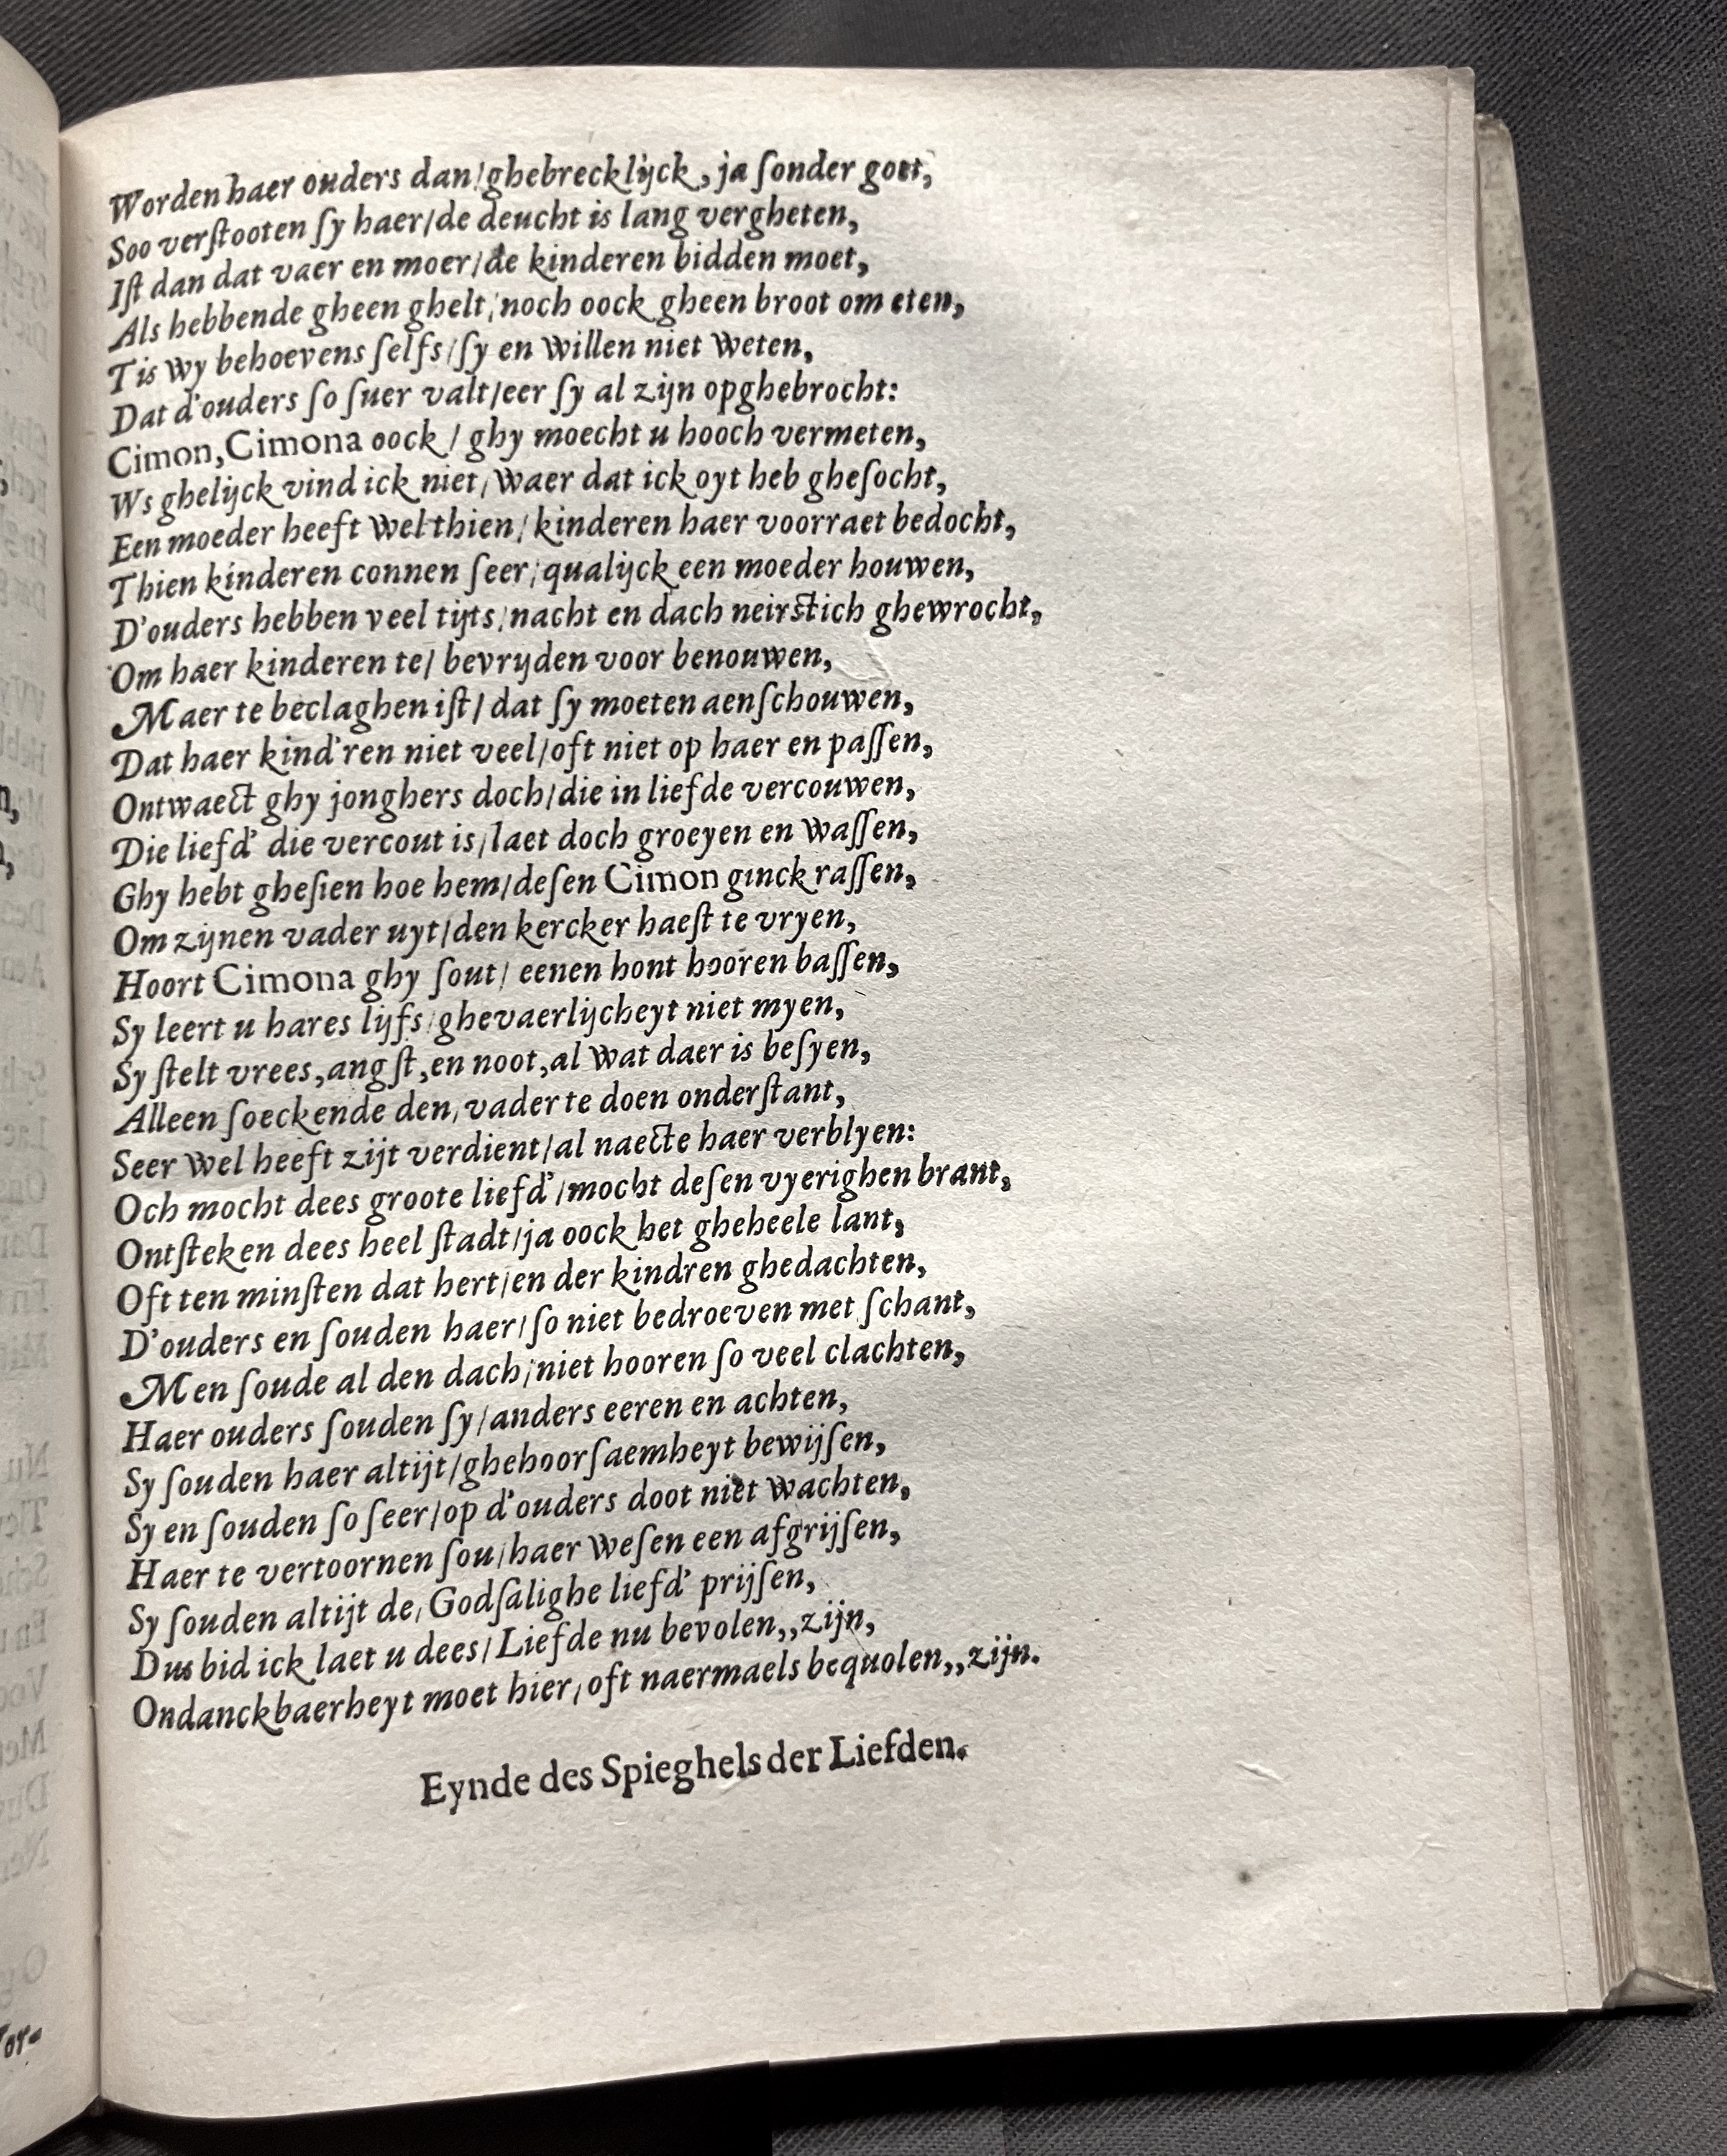 Worden haer ouders dan/ghebrecklijck, ja ſonder goet,
Soo verſtooten ſy haer/de deucht is lang vergheten,
Iſt dan dat vaer en moer/de kinderen bidden moet,
Als hebbende gheen ghelt/noch oock gheen broot om eten,
Tis wy behoevens ſelfs/ſy en willen niet weten,
Dat d'ouders ſo ſuer valt/eer ſy al zijn opghebrocht:
Cimon, Cimona oock / ghy moecht u hooch vermeten,
Ws ghelijck vind ick niet/waer dat ick oyt heb gheſocht,
Een moeder heeft wel thien/kinderen haer voorraet bedocht,
Thien kinderen connen ſeer/qualijck een moeder houwen,
D'ouders hebben veel tijts/nacht en dach neirſtich ghewrocht,
Om haer kinderen te/ bevrijden voor benouwen,
Maer te beclaghen iſt/ dat ſy moeten aenſchouwen,
Dat haer kind'ren niet veel/oft niet op haer en paſſen,
Ontwaect ghy jonghers doch/die in liefde vercouwen,
Die liefd' die vercout is/laet doch groeyen en waſſen,
Ghy hebt gheſien hoe hem/deſen Cimon ginck raſſen,
Om zijnen vader uyt/den kercker haeſt te vryen,
Hoort Cimona ghy ſout/ eenen hont hooren baſſen,
Sy leert u hares lijfs/ghevaerlijcheyt niet myen,
Sy ſtelt vrees, angſt, en noot, al wat daer is beſyen,
Alleen ſoeckende den/vader te doen onderſtant,
Seer wel heeft zijt verdient/al naecte haer verblyen:
Och mocht dees groote liefd'/mocht deſen vyerighen brant,
Ontſteken dees heel ſtadt/ja oock het gheheele lant,
Oft ten minſten dat hert/en der kindren ghedachten,
D'ouders en ſouden haer/ſo niet bedroeven met ſchant,
Men ſoude al den dach/niet hooren ſo veel clachten,
Haer ouders ſouden ſy/anders eeren en achten,
Sy ſouden haer altijt/ghehoorſaemheyt bewijſen,
Sy en ſouden ſo ſeer/op d'ouders doot niet wachten,
Haer te vertoornen ſou/haer weſen een afgrijſen,
Sy ſouden altijt de/Godſalighe liefd' prijſen,
Dus bid ick laet u dees/Liefde nu bevolen,,zijn,
Ondanckbaerheyt moet hier/oft naermaels bequolen,,zijn.
Eynde des Spieghels der Liefden.